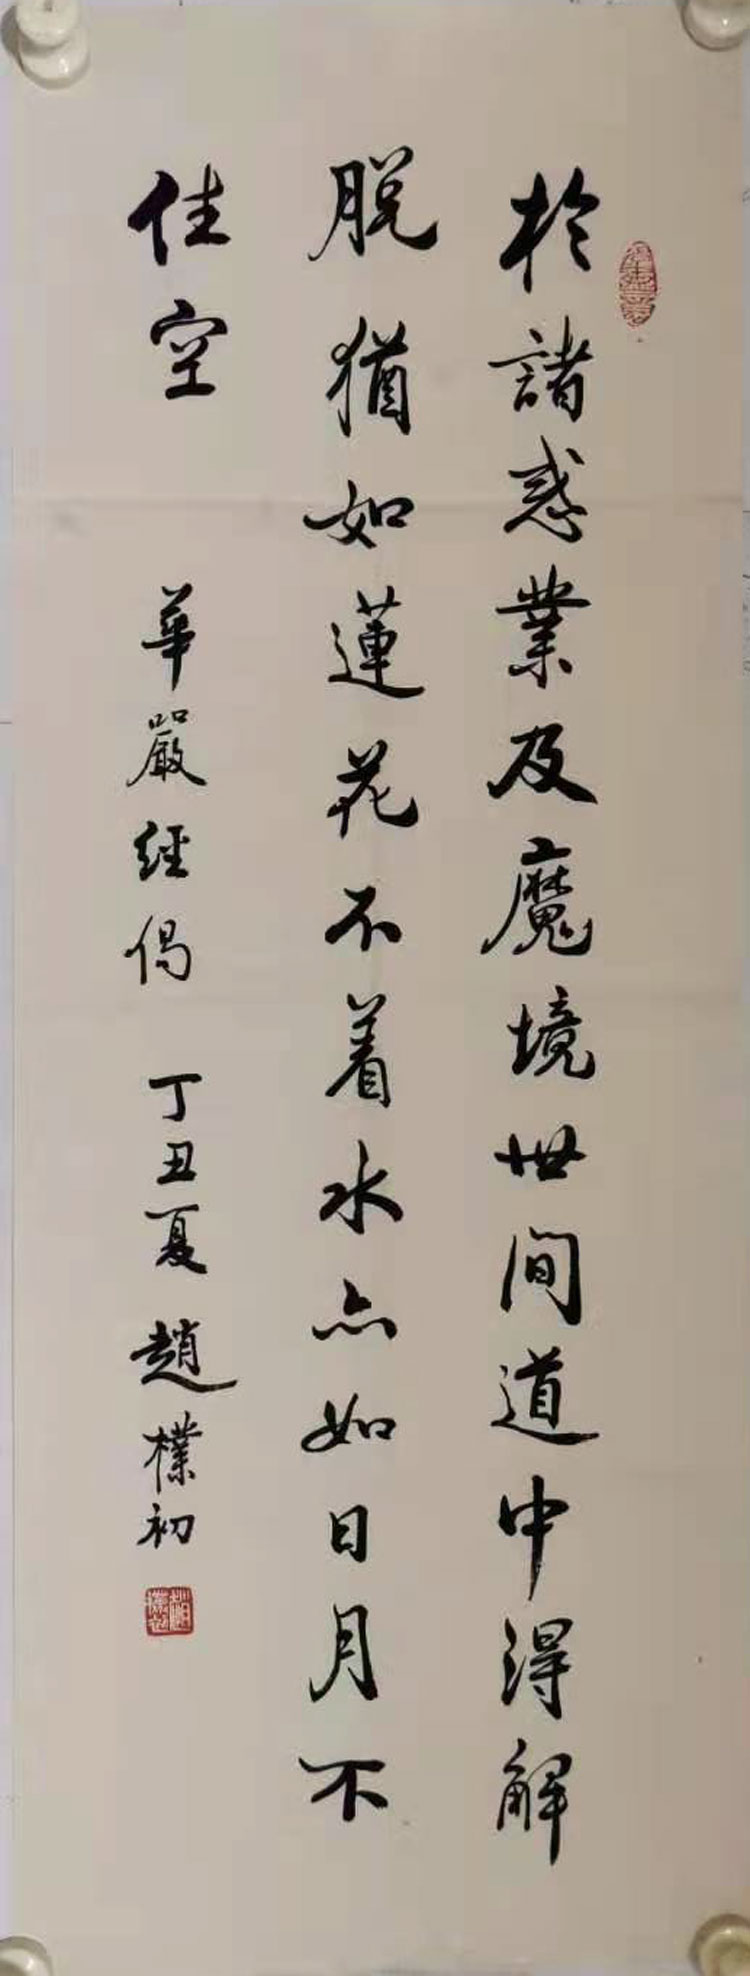 於諸惑業及魔境世间道中得解
脱猶如蓮花不着水亦如日月不
住空
華嚴經偈 丁丑夏 趙樸初